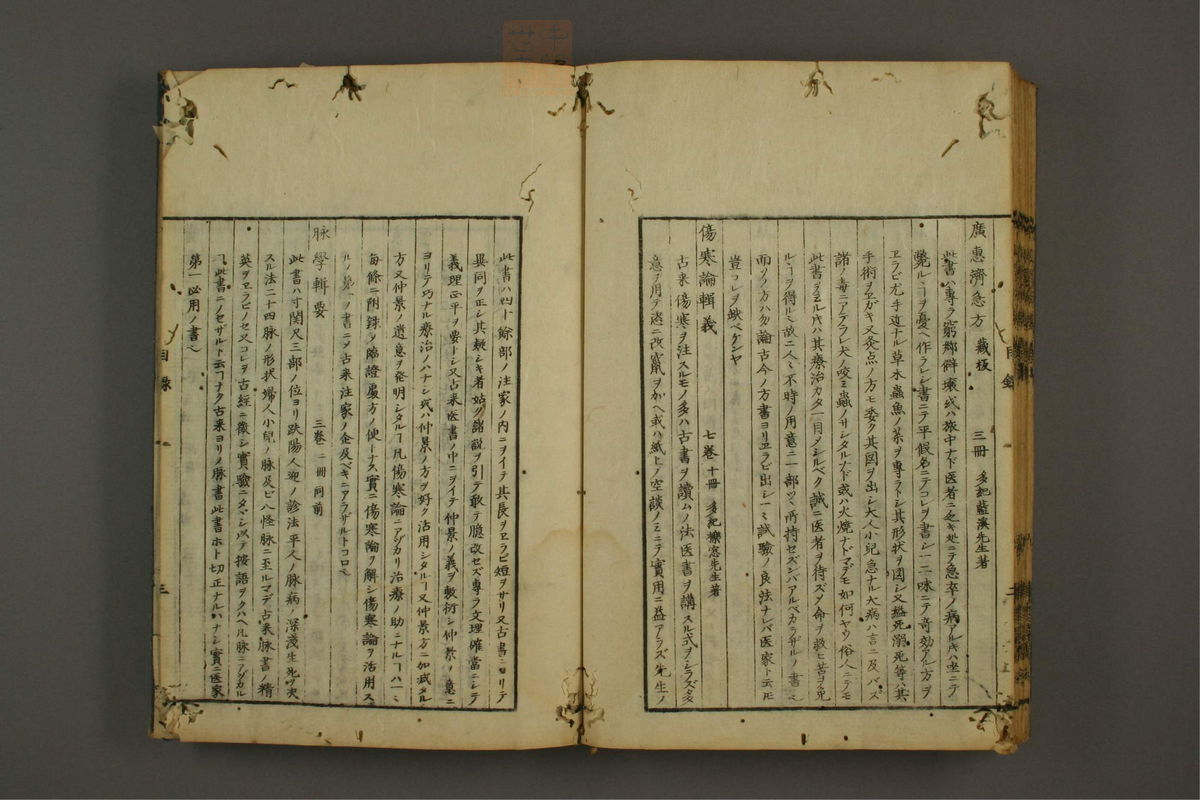 廣惠濟急方 藏板 三冊 多紀藍溪先生著
此書ハ專ラ窮鄉僻壤或ハ旅中ナド医者ニ乏キ地ニテ急卒ノ病アルハ坐ニテ
斃ルヿヲ憂ヘ作ラレシ書ニテ平假名ニテコレヲ書シ一二味ニテ奇効アル方ヲ
ヱラビ尤手近ナル草木蟲魚ノ茱ヲ專ラトシ其形狀ヲ図シ又縊死溺死等ハ其
手術ヲヱガキ又灸点ノ方モ委ク其図ヲ出シ大人小兒急ナル大病ハ言ニ及バズ
諸ノ毒ニアテラレ犬ノ咬ミ蟲ノサシタルナド或ハ火燒ナドマデモ如何ヤウ俗人ニテモ
此書ヲミル片ハ其療治カタ一目ヲシルベク誠ニ医者ヲ待ズノ命ヲ救ヒ苦ヲ免
ルヿヲ得ル故ニ人ミ不時ノ用意ニ一部ツヽ所持セズンバアルベカラザルノ書也
而ソノ方ハ勿論古今ノ方書ヨリヱラビ出シ一ミ試驗ノ良法ナレバ医家ト云圧
豈コレヲ缺ベケンヤ
傷寒論輯義 七卷 十冊 多紀櫟窓先生著
古来傷寒ヲ注スルモノ多ハ古書ヲ讀ムノ法医書ヲ講スル式ヲシラズタ
意ヲ用テ遂ニ改竄ヲ加ヘ或ハ紙上ノ空談ノミニテ實用ニ益アラズ先生ノ
此書ハ四十餘部ノ注家ノ内ニヲイテ其長ヲヱラビ短ヲサリ又古書ニヨリテ
異同ヲ正シ其疑シキ者姑ク諸說ヲ引テ敢テ臆改セズ專ラ文理確當ニシテ
義理正平ヲ要トシ又古来医書ノ中ニヲイテ仲景ノ義ヲ敷衍シ仲景ノ意ニ
ヨリテ巧ナル療治ノハナシ或ハ仲景ノ方ヲ好ク活用シタルヿ又仲景方ニ加減タル
方又仲景ノ遺意ヲ発明シタルヿ凡傷寒論ニアヅカリ治療ノ助ニナルヿハ一ミ
每條ニ附錄シ臨證處方ノ便トナス實ニ傷寒論ヲ解シ傷寒論ヲ活用ス
ルノ第一ノ書ニメ古来注家ノ企及ベキニアラザルトコロ也
脉學輯要 三卷 二冊 同前
此書ハ寸関尺三部ノ位ヨリ趺陽人迎ノ診法平人ノ脉病ノ深淺生死ヲ决
スル法二十四脉ノ形狀婦人小兒ノ脉及ビ八怪脉ニ至ルマデ古来脉書ノ精
英ヲヱラビノセ又コレヲ古經ニ徵シ實驗ニタヾシ以テ按語ヲクハヘ凡脉ニアヅカル
ヿ此書ニノセザルト云ヿナク古来ヨリノ脉書此書ホト切正ナルハナシ實ニ医家
第一必用ノ書也
目錄 三